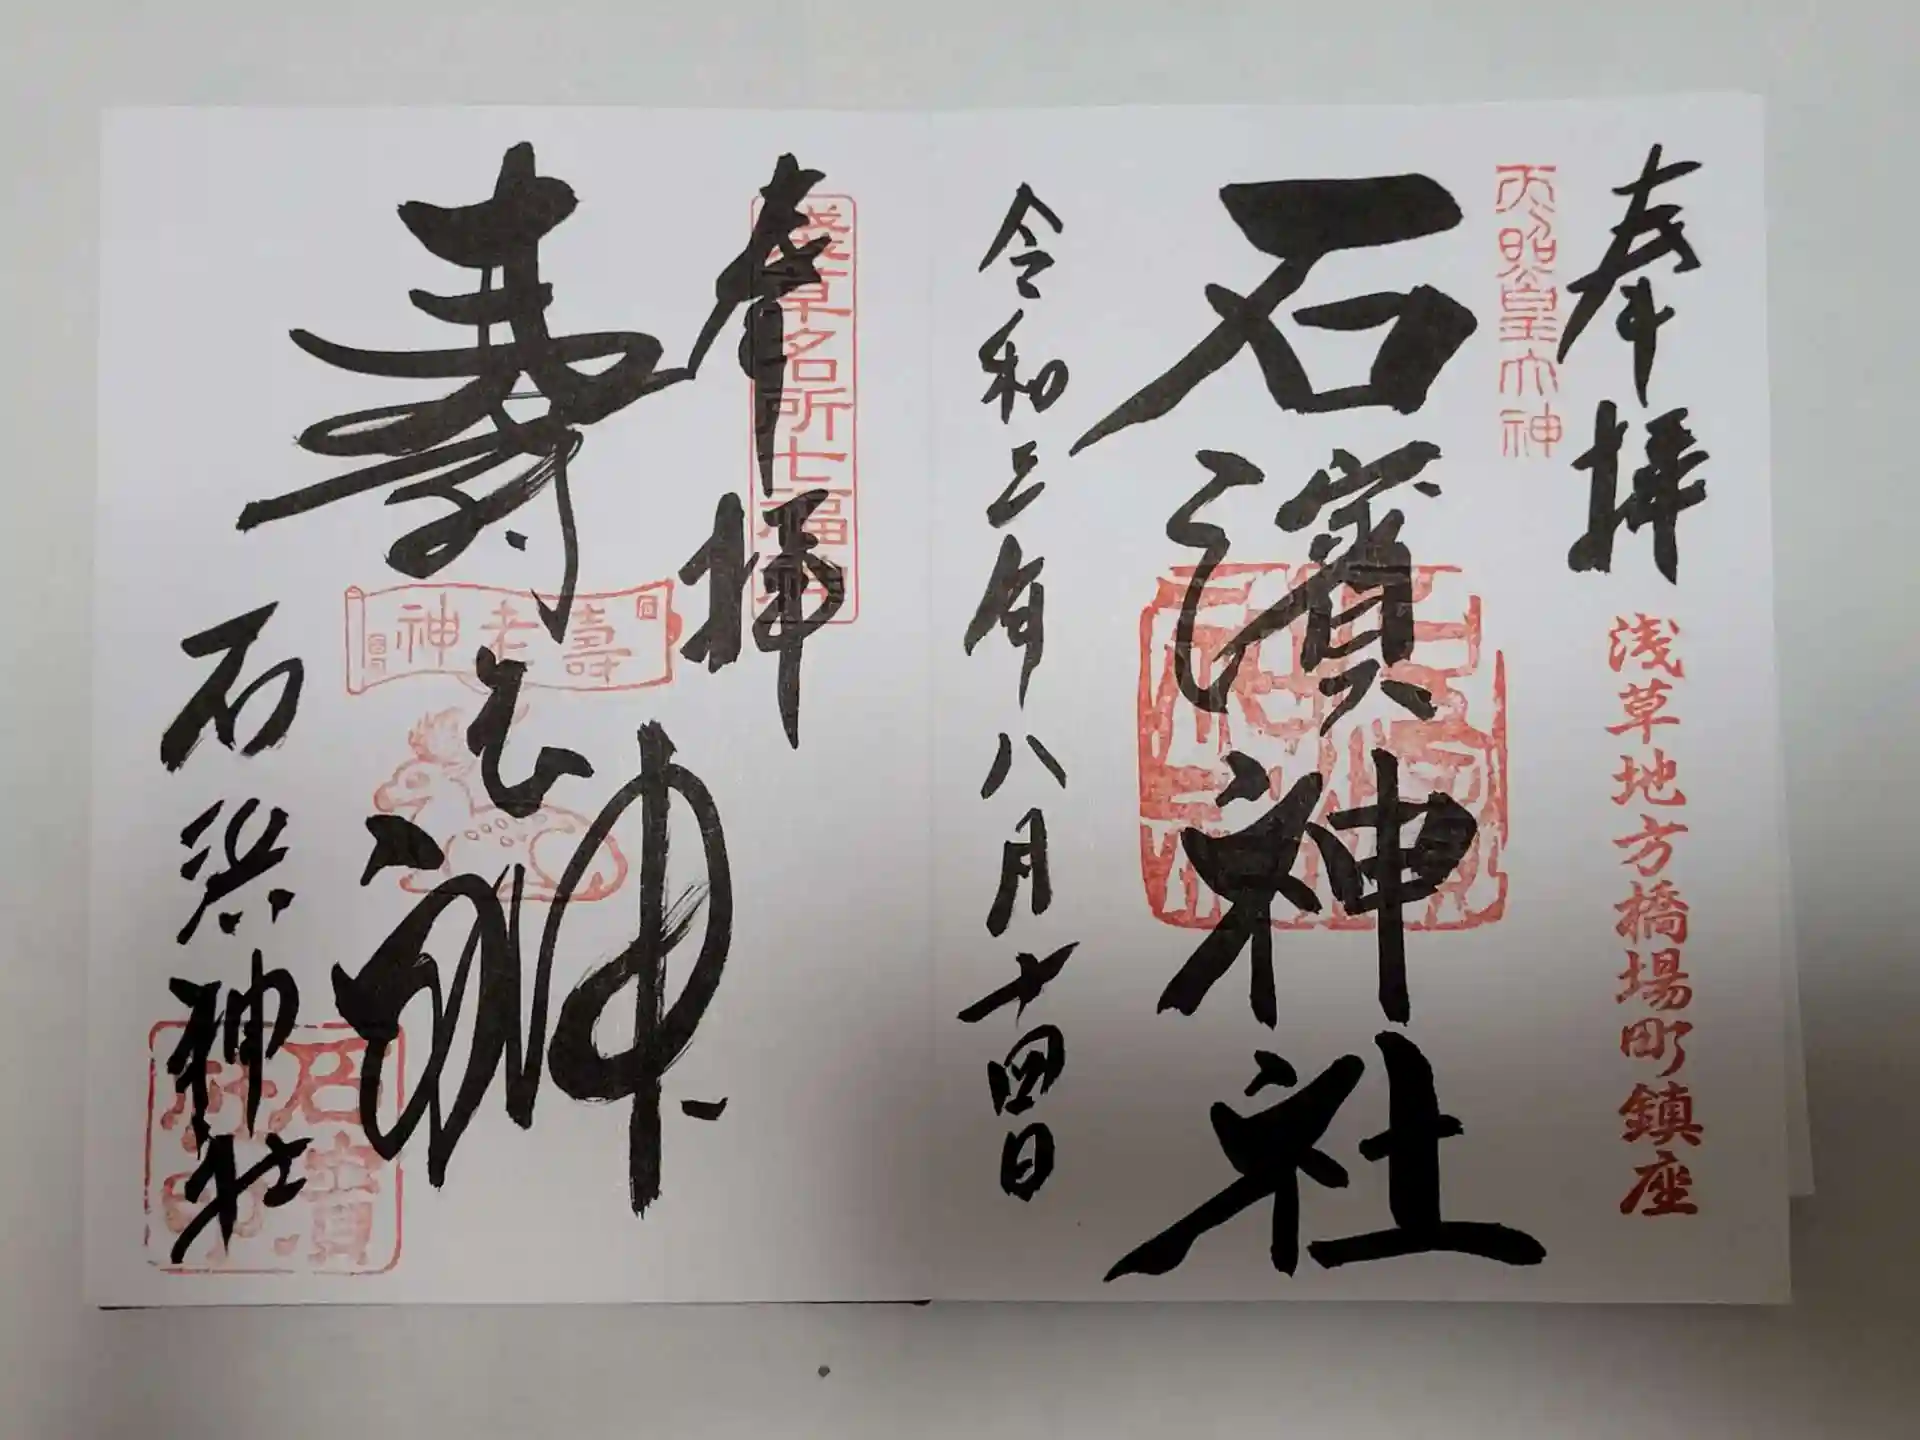 奉拝
天照皇大神
浅草地方橋場町鎮座
石濱神社
令和三年八月十四日
奉拝
淺草名所七福神
壽老神
壽老神
石浜神社